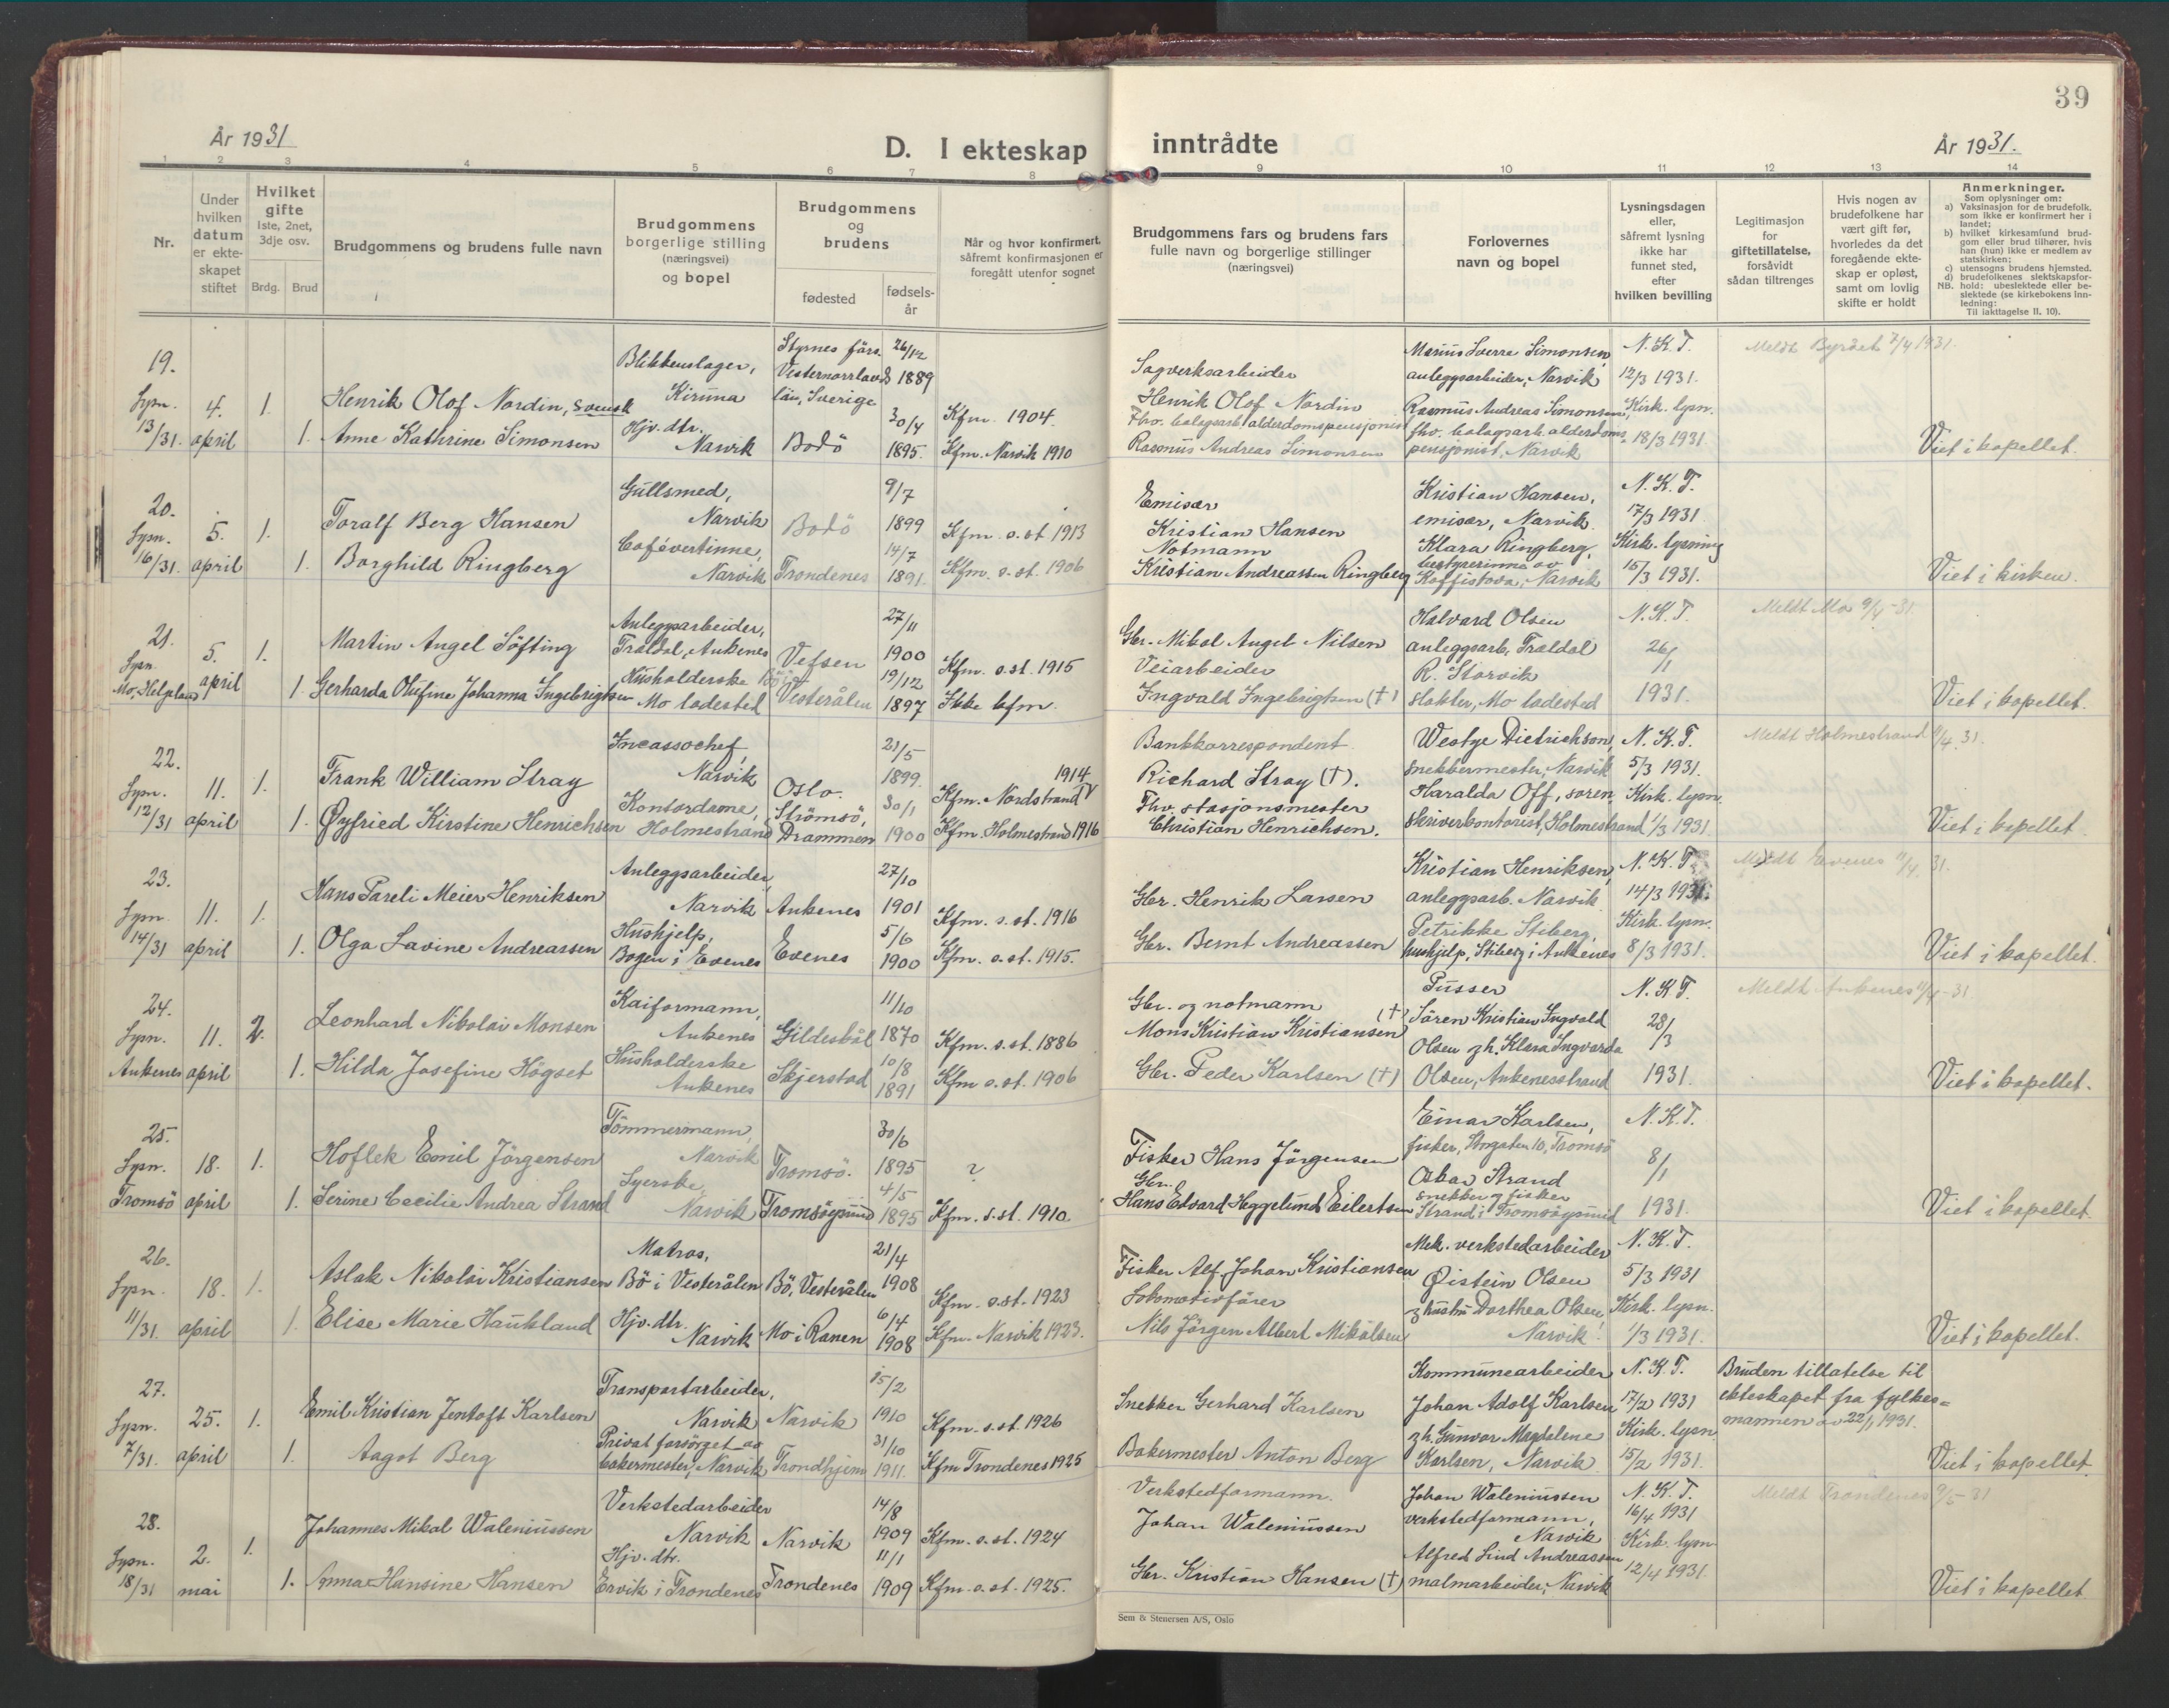 39
År 1931
D. I ekteskap inntrådte
År 1931.
1 2 3 4 5 6 7 8 9 10 11 12 13 14
Nr.
Under hvilken datum er ekteskapet stiftet
Hvilket gifte 1ste, 2net, 3dje osv.
Brdg. Brud
Brudgommens og brudens fulle navn
Brudgommens borgerlige stilling (næringsvei) og bopel
Brudgommens og brudens
fødested
fødselsår
Når og hvor konfirmert, såfremt konfirmasjonen er foregått utenfor sognet
Brudgommens fars og brudens fars fulle navn og borgerlige stillinger (næringsvei)
Forlovernes navn og bopel
Lysningsdagen eller, såfremt lysning ikke har funnet sted, efter hvilken bevilling
Legitimasjon for giftetillatelse, forsåvidt sådan tiltrenges
Hvis nogen av brudefolkene har vært gift før, hvorledes da det foregående ekteskap er opløst, samt om lovlig skifte er holdt
Anmerkninger.
Som oplysninger om:
a) Vaksinasjon for de brudefolk, som ikke er konfirmert her i landet;
b) hvilket kirkesamfund brudgom eller brud tilhører, hvis han (hun) ikke er medlem av statskirken;
c) utensogns brudens hjemsted.
d) brudefolkenes slektskapsforhold: ubeslektede eller beslektede (se kirkebokens innledning:
NB.
Til iakttagelse II. 10).
19.
Lysn. 13/31.
4. april
1.
1.
Henrik Olof Nordin, svensk
Anne Kathrine Simonsen
Blikkenslager, Kiruna
Hjv. dtr. Narvik
Styrnes förs. Vesternorrlands län, Sverige
Bodö
26/12 1889
30/4 1895.
Kfm. 1904.
Kfm. Narvik 1910
Sagverksarbeider
Henrik Olof Nordin
Fhv. bolagsarb. alderdomspensjonist
Rasmus Andreas Simonsen
Marius Sverre Simonsen, anleggsarbeider, Narvik
Rasmus Andreas Simonsen, fhv. bolagsarb. alderdomspensjonist, Narvik
N. K. T. 12/3 1931.
Kirk. lysn. 18/3 1931.
Meldt Byrået 7/4 1931.
Viet i kapellet.
20.
Lysn. 16/31.
5. april
1.
1.
Toralf Berg Hansen
Borghild Ringberg
Gullsmed, Narvik
Cafévertinne, Narvik
Bodö
Trondenes
9/7 1899
14/7 1891.
Kfm. s. st. 1913
Kfm. s. st. 1906
Emisær
Kristian Hansen
Notmann
Kristian Andreassen Ringberg
Kristian Hansen, emisær, Narvik.
Klara Ringberg, bestyrerinne av Kaffistova, Narvik
N. K. T. 17/3 1931
Kirk. lysning 15/3 1931.
Viet i kirken.
21.
Lysn. Mo, Helgeland
5. april
1.
1.
Martin Angel Söfting
Gerharda Olufine Johanna Ingebrigtsen
Anleggsarbeider, Traldal, Ankenes
Husholderske Mo ladested
Vefsen
Vesterålen
27/11 1900
19/12 1897
Kfm. s. st. 1915
Ikke kfm.
Gbr. Mikal Angel Nilsen
Veiarbeider
Ingvald Ingebrigtsen (†)
Halvard Olsen anleggsarb. Traldal
R. Storvik slakter, Mo ladested
N. K. T. 26/1 1931.
Meldt Mo 9/4-31.
Viet i kapellet.
22.
Lysn. 12/31
11. april
1.
1.
Frank William Stray
Øyfried Kirstine Henrichsen
Incassochef, Narvik
Kontordame, Holmestrand
Oslo.
Strömsö, Drammen
21/5 1899.
30/1 1900
1914
Kfm. Nordstrand
Kfm. Holmestrand 1916
Bankkorrespondent
Richard Stray (†).
Fhv. stasjonsmester
Christian Henrichsen.
Westye Dietrichson, snekkermester, Narvik
Haralda Off, sorenskriverkontorist, Holmestrand
N. K. T. 5/3 1931.
Kirk. lysn. 1/3 1931
Meldt Holmestrand 9/4.31.
Viet i kapellet.
23.
Lysn. 14/31
11. april
1.
1.
Hans Pareli Meier Henriksen
Olga Lavine Andreassen
Anleggsarbeider, Narvik
Hushjelp, Bogen i Evenes
Ankenes
Evenes
27/10 1901
5/6 1900
Kfm. s. st. 1916
Kfm. s. st. 1915.
Gbr. Henrik Larsen
Gbr. Bernt Andreassen
Kristian Henriksen, anleggsarb. Narvik
Petrikke Stiberg, hushjelp, Stiberg i Ankenes
N. K. T. 14/3 1931.
Kirk. lysn. 8/3 1931.
Meldt Evenes 11/4 31.
Viet i kapellet.
24.
Lysn. Ankenes
11. april
2.
1.
Leonhard Nikolai Monsen
Hilda Josefine Högset
Kaiformann, Ankenes
Husholderske Ankenes
Gildeskål
Skjerstad
11/10 1870
10/8 1891
Kfm. s. st. 1886
Kfm s. st. 1906
Gbr. og notmann (†)
Mons Kristian Kristiansen
Gbr. Peder Karlsen (†)
Pusser Sören Kristian Ingvald Olsen
og h. Klara Ingvarda Olsen, Ankenesstrand
N. K. T. 28/3 1931.
Meldt Ankenes 11/4-31
Viet i kapellet.
25.
Lysn. Tromsö
18. april
1.
1.
Hoflek Emil Jörgensen
Serine Cecilie Andrea Strand
Tömmermann, Narvik
Syerske, Narvik
Tromsö.
Tromsöysund
30/6 1895
4/5 1895
?
Kfm. s. st. 1910.
Fisker Hans Jörgensen
Gbr.
Hans Edvard Heggelund Eilertsen
Einar Karlsen, fisker, Tromsö
Oskar Strand snekker og fisker Strand i Tromsöysund
N. K. T. 8/1 1931.
Viet i kapellet.
26.
Lysn. 11/31.
18. april
1.
1.
Aslak Nikolai Kristiansen
Elise Marie Haukland
Matros, Bö i Vesterålen
Hjv. dtr. Narvik
Bö, Vesterålen
Mo i Ranen
21/4 1908
6/4 1908
Kfm. s. st. 1923
Kfm. Narvik 1923.
Fisker Alf Johan Kristiansen
Lokomotivförer
Nils Jörgen Albert Mikalsen
Mek. verkstedarbeider Øistein Olsen
og hustru Dorthea Olsen, Narvik.
N. K. T. 5/3 1931
Kirk. lysn. 1/3 1931.
Viet i kapellet.
27.
Lysn. 7/31.
25. april
1.
1.
Emil Kristian Jentoft Karlsen
Aagot Berg
Transportarbeider, Narvik
Privat forsörget av bakermester, Narvik
Narvik
Trondhjem
15/2 1910
31/10 1911.
Kfm. s. st. 1926
Kfm Trondenes 1925
Snekker Gerhard Karlsen
Bakermester Anton Berg
Kommunearbeider Johan Adolf Karlsen
og h. Gunvor Magdalene Karlsen, Narvik
N. K. T. 17/2 1931
Kirk. lysn. 15/2 1931.
Bruden tillatelse til ekteskapet fra fylkesmannen av 22/1 1931.
Viet i kapellet
28.
Lysn. 18/31
2. mai
1.
1.
Johannes Mikal Waleniussen
Anna Hansine Hansen
Verkstedarbeider Narvik
Hjv. dtr. Ervik i Trondenes
Narvik
Trondenes
14/8 1909
11/1 1909
Kfm. s. st. 1924
Kfm. s. st. 1925.
Verkstedformann.
Johan Waleniussen
Gbr. Kristian Hansen (†)
Johan Waleniussen verkstedformann, Narvik
Alfred Lind Andreassen malmarbeider, Narvik
N. K. T. 16/4 1931
Kirk. lysn. 12/4 1931.
Meldt Trondenes 9/5-31
Viet i kapellet
Sem & Stenersen A/S, Oslo